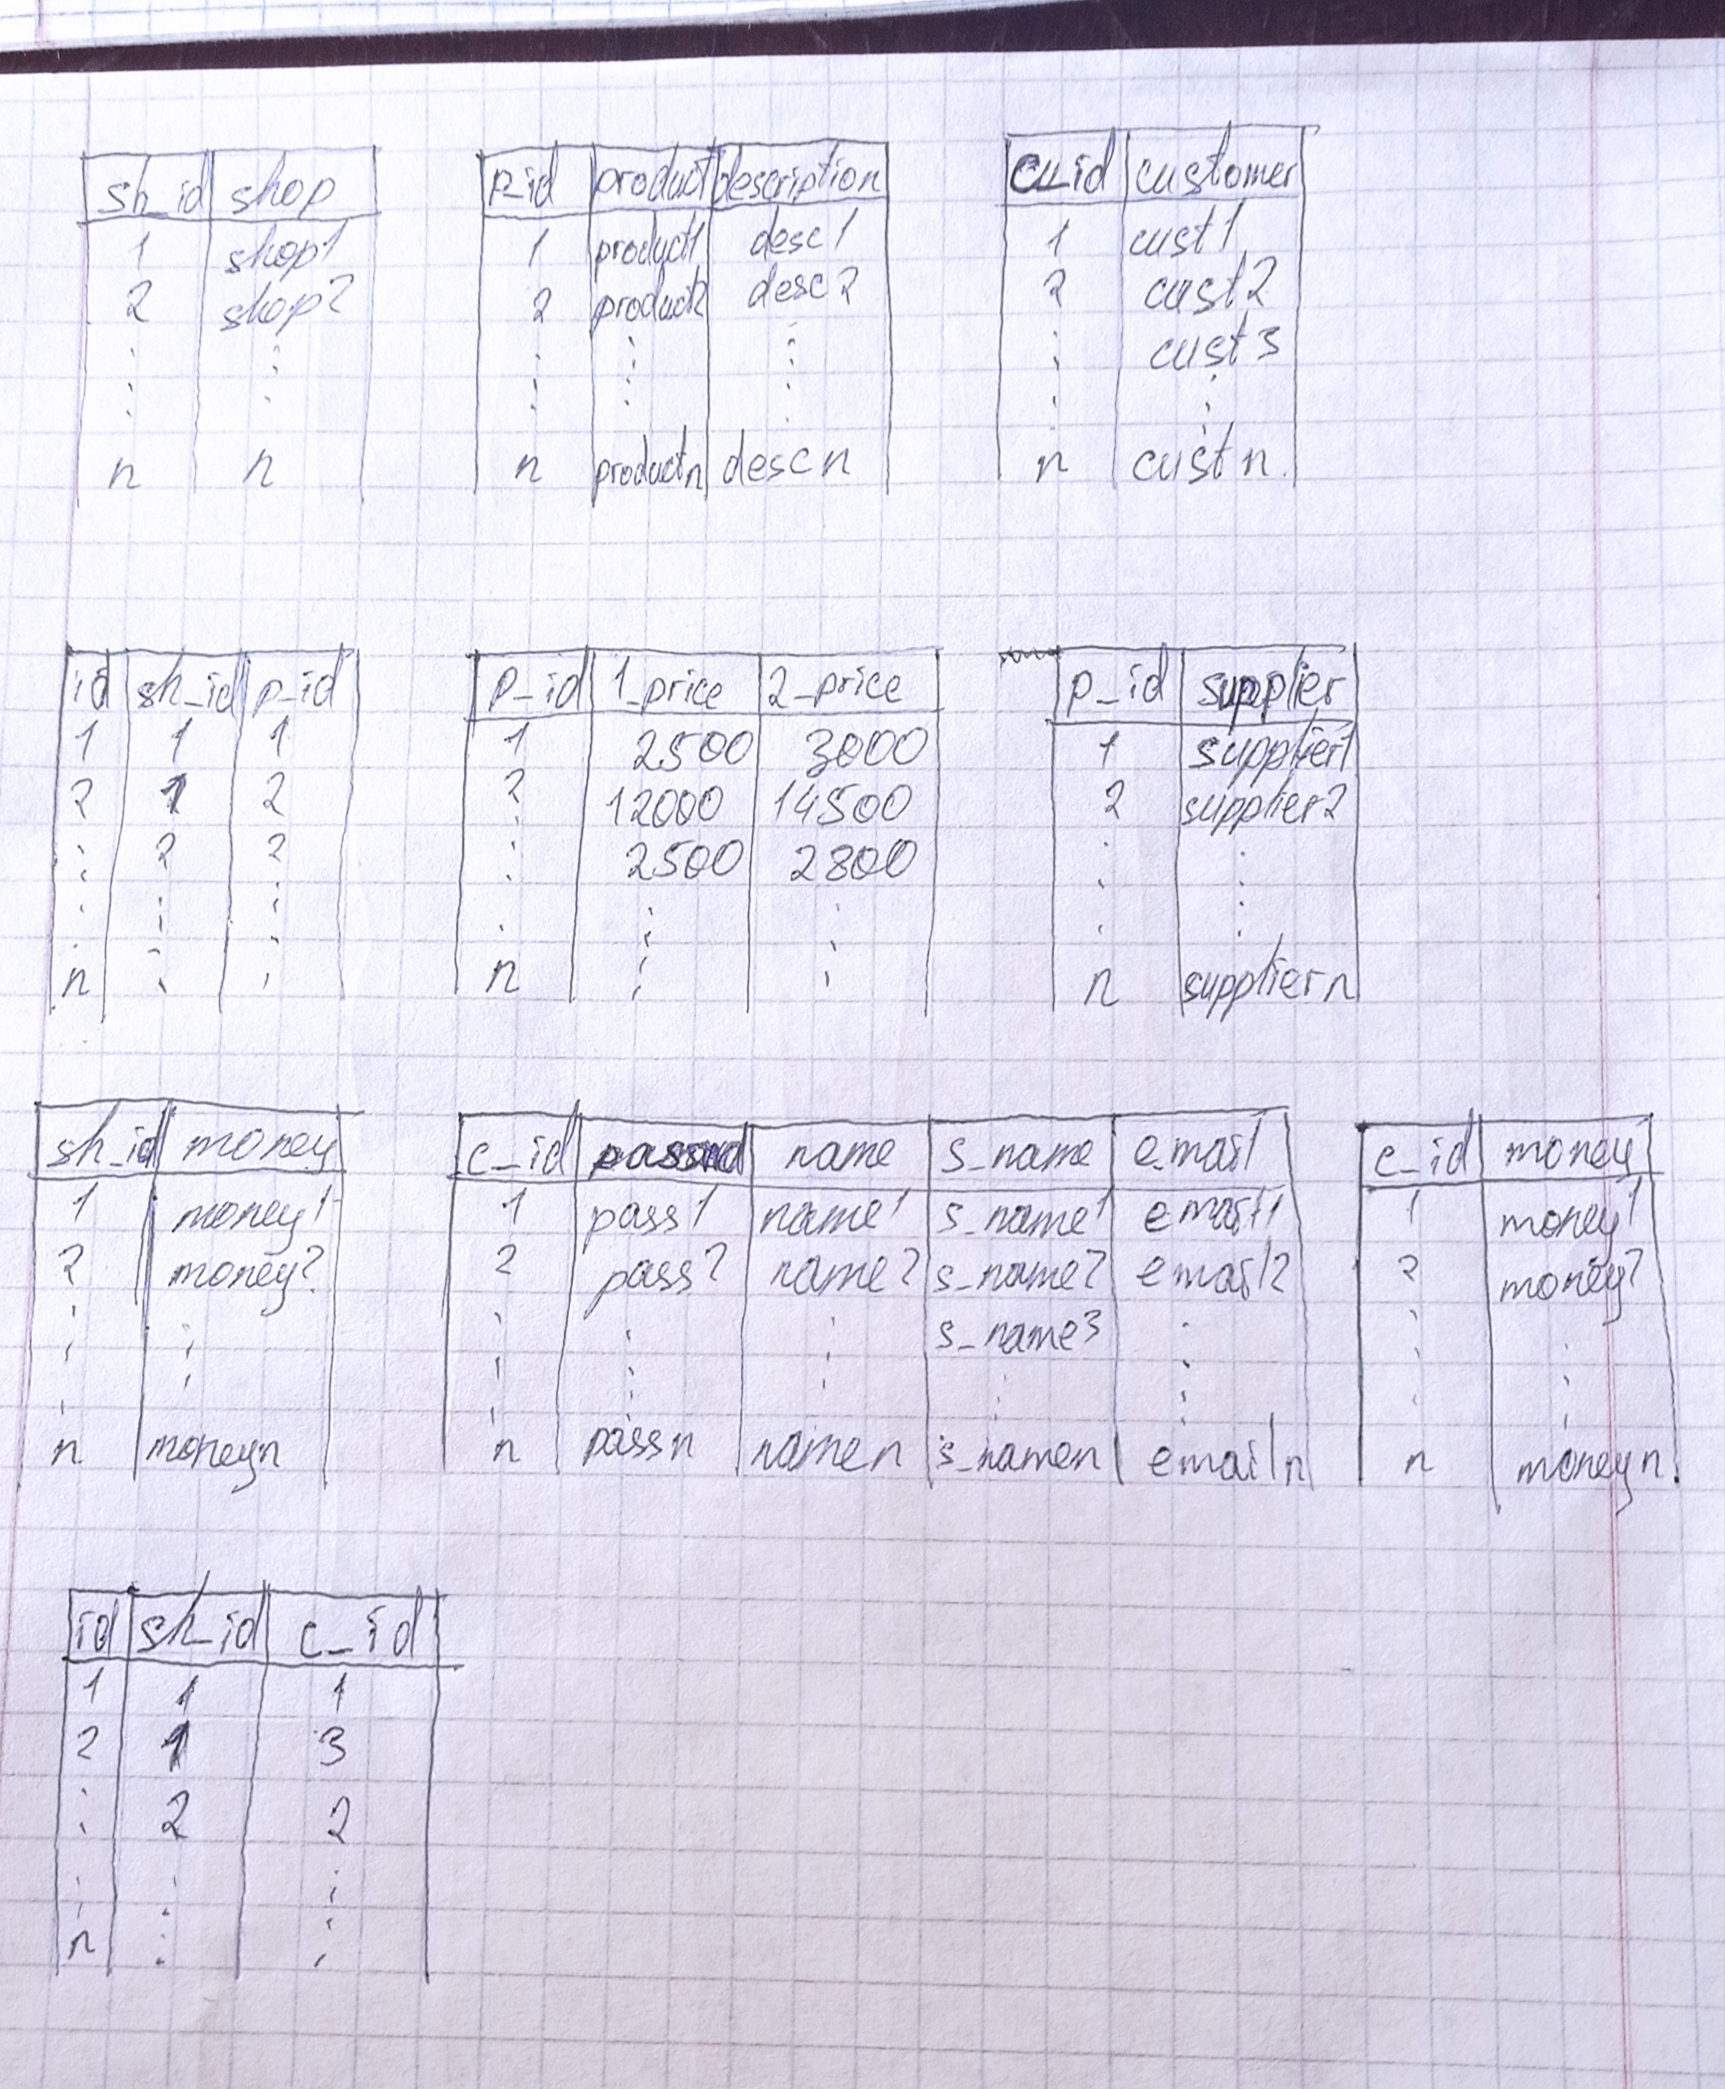 sh_id shop
1 shop1
2 shop2
n n
p_id product description
1 product1 desc1
2 product2 desc2
n productn descn
cu_id customer
1 cust1
2 cust2
cust3
n custn
id sh_id p_id
1 1 1
2 1 2
2 2
n
p_id 1_price 2_price
1 2500 3000
2 12000 14500
2500 2800
n
p_id supplier
1 supplier1
2 supplier2
n suppliern
sh_id money
1 money1
2 money2
n moneyn
c_id name s_name email
1 pass1 name1 s_name1 email1
2 pass2 name2 s_name2 email2
s_name3
n passn namen s_namen emailn
c_id money
1 money1
2 money2
n moneyn
id sh_id c_id
1 1 1
2 1 3
2 2
n